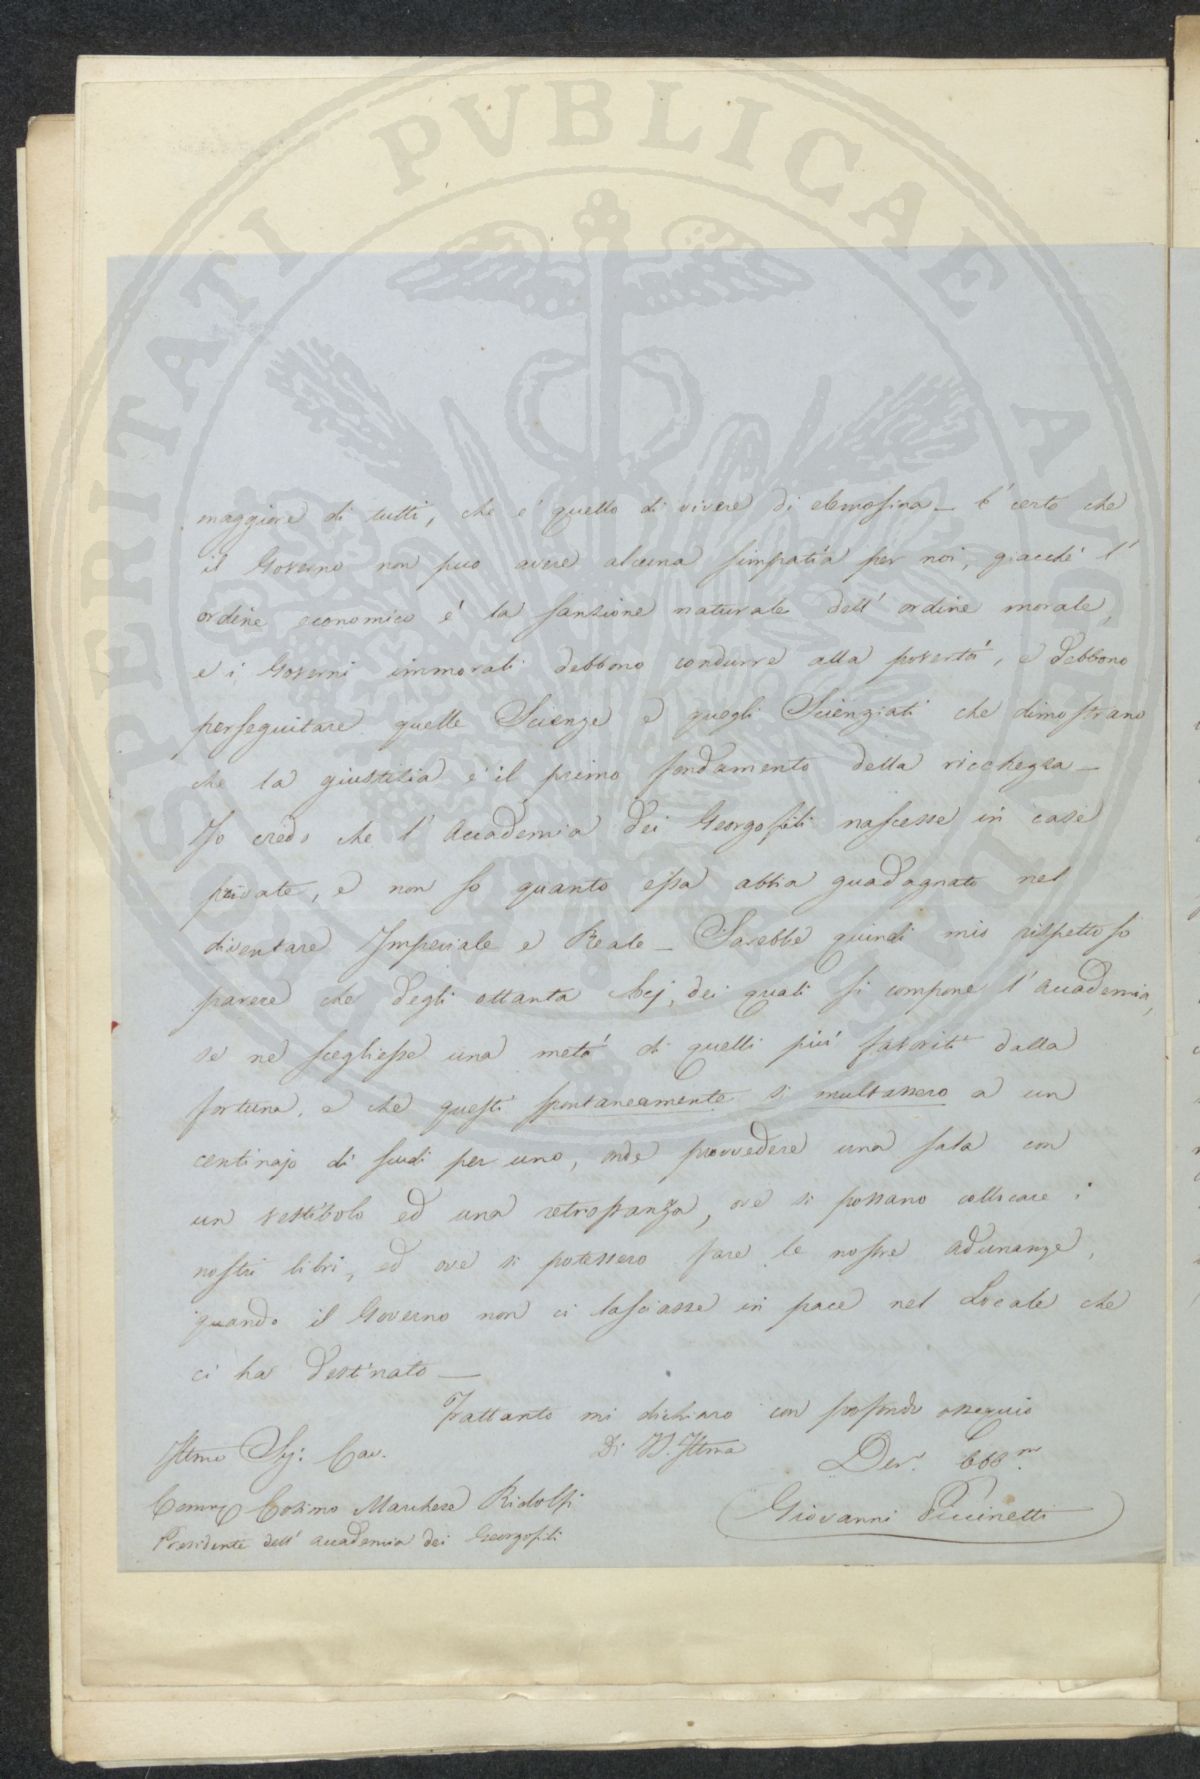 maggiore di tutti, che e' quello di vivere di elemosina — E' certo che
il Governo non puo avere alcuna simpatia per noi, giacché l'
ordine economico e' la sanzione naturale dell' ordine morale,
e i Governi immorali debbono condurre alla povertà, e debbono
perseguitare quelle Scienze e quegli Scienziati che dimostrano
che la giustizia e' il primo fondamento della ricchezza —
Io credo che l' Accademia dei Georgofili nascesse in case
private, e non so quanto essa abbia guadagnato nel
diventare Imperiale e Reale — Sarebbe quindi mio rispettoso
parere che degli ottanta Socj, dei quali si compone l' Accademia,
se ne scegliesse una metà di quelli più favoriti dalla
fortuna, e che questi spontaneamente si multassero a un
centinajo di scudi per uno, onde provvedere una sala con
un vestibolo ed una retrostanza, ove si possano collocare i
nostri libri, ed ove si potessero fare le nostre adunanze,
quando il Governo non ci lasciasse in pace nel Locale che
ci ha destinato —
Frattanto mi dichiaro con profondo ossequio
Di V. Illma
Illmo Sig: Cav.
Dev. Obb.mo
Comm Cosimo Marchese Ridolfi
Giovanni Puccinetti
Presidente dell' Accademia dei Georgofili
PROSPERITATI PVBLICAE AVGENDAE